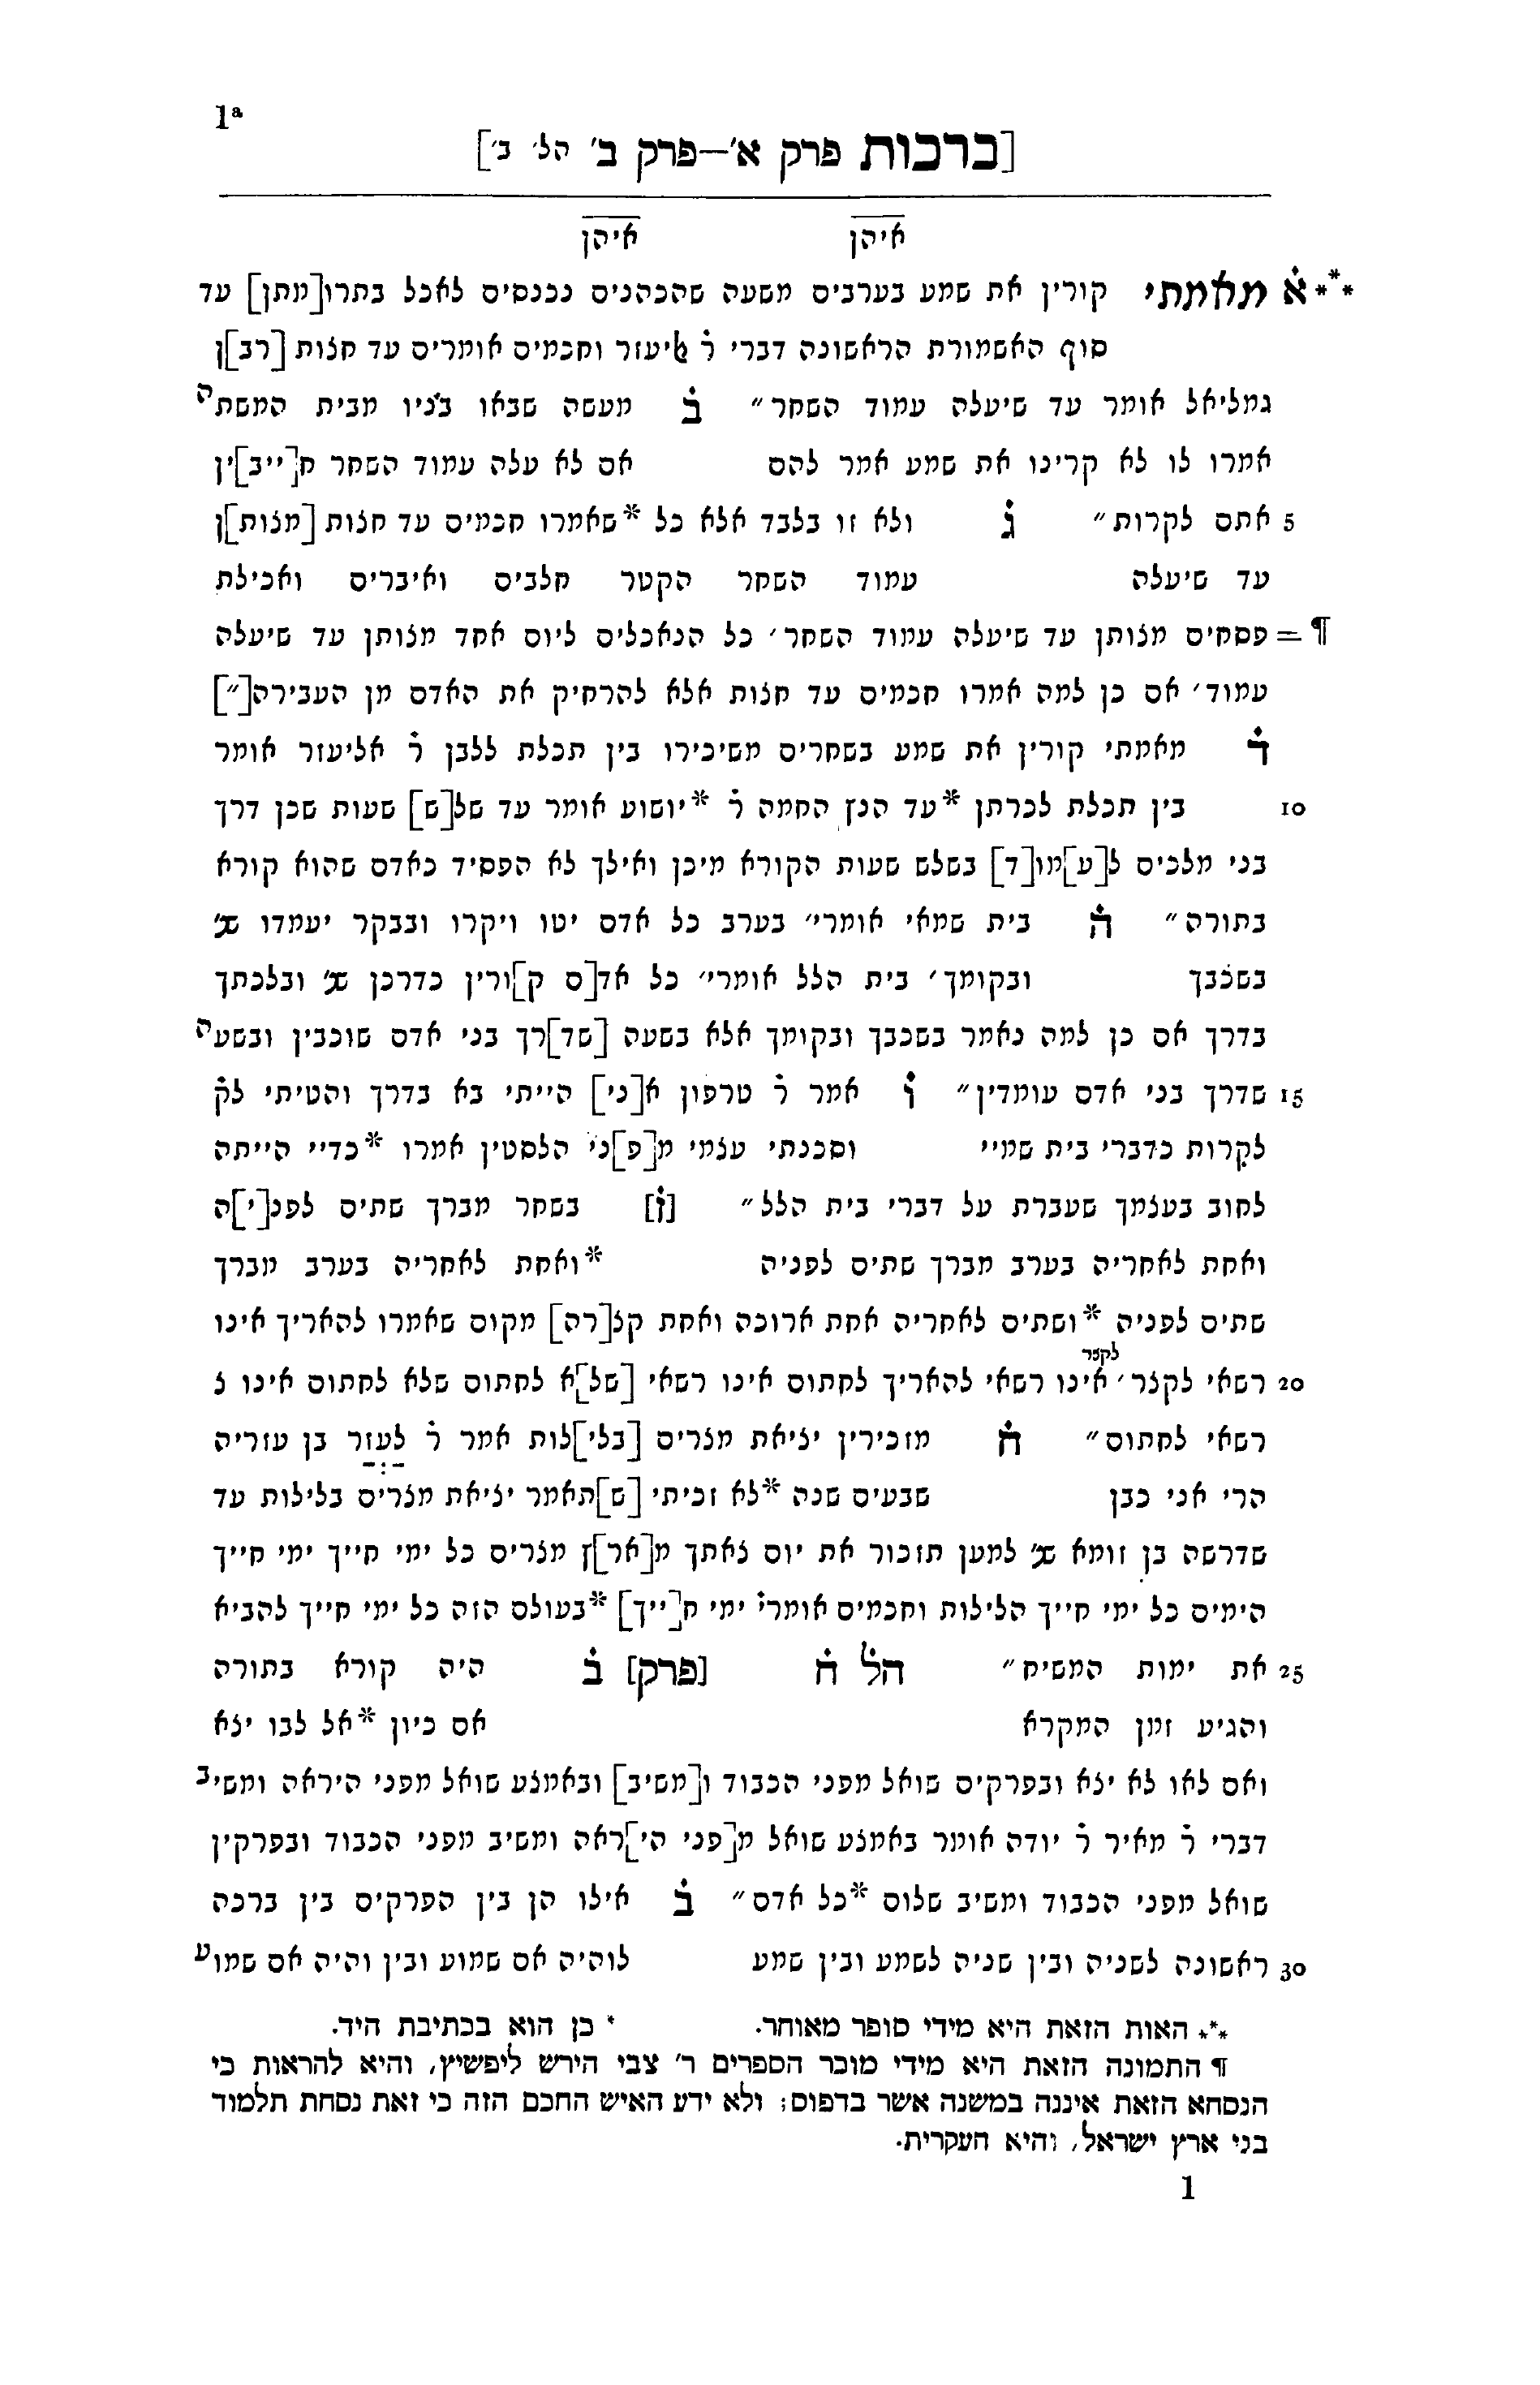 1a
[ברכות פרק א׳—פרק ב׳ הל׳ ב׳]
איהן איהן
*** א̇ מאמתי קורין את שמע בערבים משעה שהכהנים נכנסים לאכל בתרו[מתן] עד
סוף האשמורת הראשונה דברי ר̇ אליעזר וחכמים אומרים עד חצות [רב]ן
גמליאל אומר עד שיעלה עמוד השחר״ ב̇ מעשה שבאו בניו מבית המשתה
אמרו לו לא קרינו את שמע אמר להם אם לא עלה עמוד השחר ח[ייב]ין
5 אתם לקרות״ ג̇ ולא זו בלבד אלא כל *שאמרו חכמים עד חצות [מצות]ן
עד שיעלה עמוד השחר הקטר חלבים ואיברים ואכילת
¶ = פסחים מצותן עד שיעלה עמוד השחר׳ כל הנאכלים ליום אחד מצותן עד שיעלה
עמוד׳ אם כן למה אמרו חכמים עד חצות אלא להרחיק את האדם מן העבירה[״]
ד̇ מאמתי קורין את שמע בשחרים משיכירו בין תכלת ללבן ר̇ אליעזר אומר
10 בין תכלת לכרתן *עד הנץ החמה ר̇ *יושוע אומר עד של[ש] שעות שכן דרך
בני מלכים ל[ע]מו[ד] בשלש שעות הקורא מיכן ואילך לא הפסיד כאדם שהוא קורא
בתורה״ ה̇ בית שמאי אומרי׳ בערב כל אדם יטו ויקרו ובבקר יעמדו שנ׳
בשכבך ובקומך׳ בית הלל אומרי׳ כל אד[ם ק]ורין כדרכן שנ׳ ובלכתך
בדרך אם כן למה נאמר בשכבך ובקומך אלא בשעה [שד]רך בני אדם שוכבין ובשעה
15 שדרך בני אדם עומדין״ ו̇ אמר ר̇ טרפון א[ני] הייתי בא בדרך והטיתי לק̇
לקרות כדברי בית שמיי וסכנתי עצמי מ[פ]ני הלסטין אמרו *כדיי הייתה
לחוב בעצמך שעברת על דברי בית הלל״ [ז̇] בשחר מברך שתים לפנ[י]ה
ואחת לאחריה בערב מברך שתים לפניה *ואחת לאחריה בערב מברך
שתים לפניה *ושתים לאחריה אחת ארוכה ואחת קצ[רה] מקום שאמרו להאריך אינו
לקצר
20 רשאי לקצר׳ אינו רשאי להאריך לחתום אינו רשאי [של]א לחתום שלא לחתום אינו צ
רשאי לחתום״ ח̇ מזכירין יציאת מצרים [בלי]לות אמר ר̇ לעזר בן עזריה
הרי אני כבן שבעים שנה *לא זכיתי [ש]תאמר יציאת מצרים בלילות עד
שדרשה בן זומא שנ׳ למען תזכור את יום צאתך מ[אר]ץ מצרים כל ימי חייך ימי חייך
הימים כל ימי חייך הלילות וחכמים אומרי̇ ימי ח[ייך] *בעולם הזה כל ימי חייך להביא
25 את ימות המשיח״ הל̇ ח̇ [פרק] ב̇ היה קורא בתורה
והגיע זמן המקרא אם כיון *אל לבו יצא
ואם לאו לא יצא ובפרקים שואל מפני הכבוד ו[משיב] ובאמצע שואל מפני היראה ומשיב
דברי ר̇ מאיר ר̇ יודה אומר באמצע שואל מ[פני הי]ראה ומשיב מפני הכבוד ובפרקין
שואל מפני הכבוד ומשיב שלום *כל אדם״ ב̇ אילו הן בין הפרקים בין ברכה
30 ראשונה לשניה ובין שניה לשמע ובין שמע לוהיה אם שמוע ובין והיה אם שמוע
*** האות הזאת היא מידי סופר מאוחר. * כן הוא בכתיבת היד.
¶ התמונה הזאת היא מידי מוכר הספרים ר׳ צבי הירש ליפשיץ, והיא להראות כי
הנסחא הזאת איננה במשנה אשר בדפוס; ולא ידע האיש החכם הזה כי זאת נסחת תלמוד
בני ארץ ישראל, והיא העקרית.
1